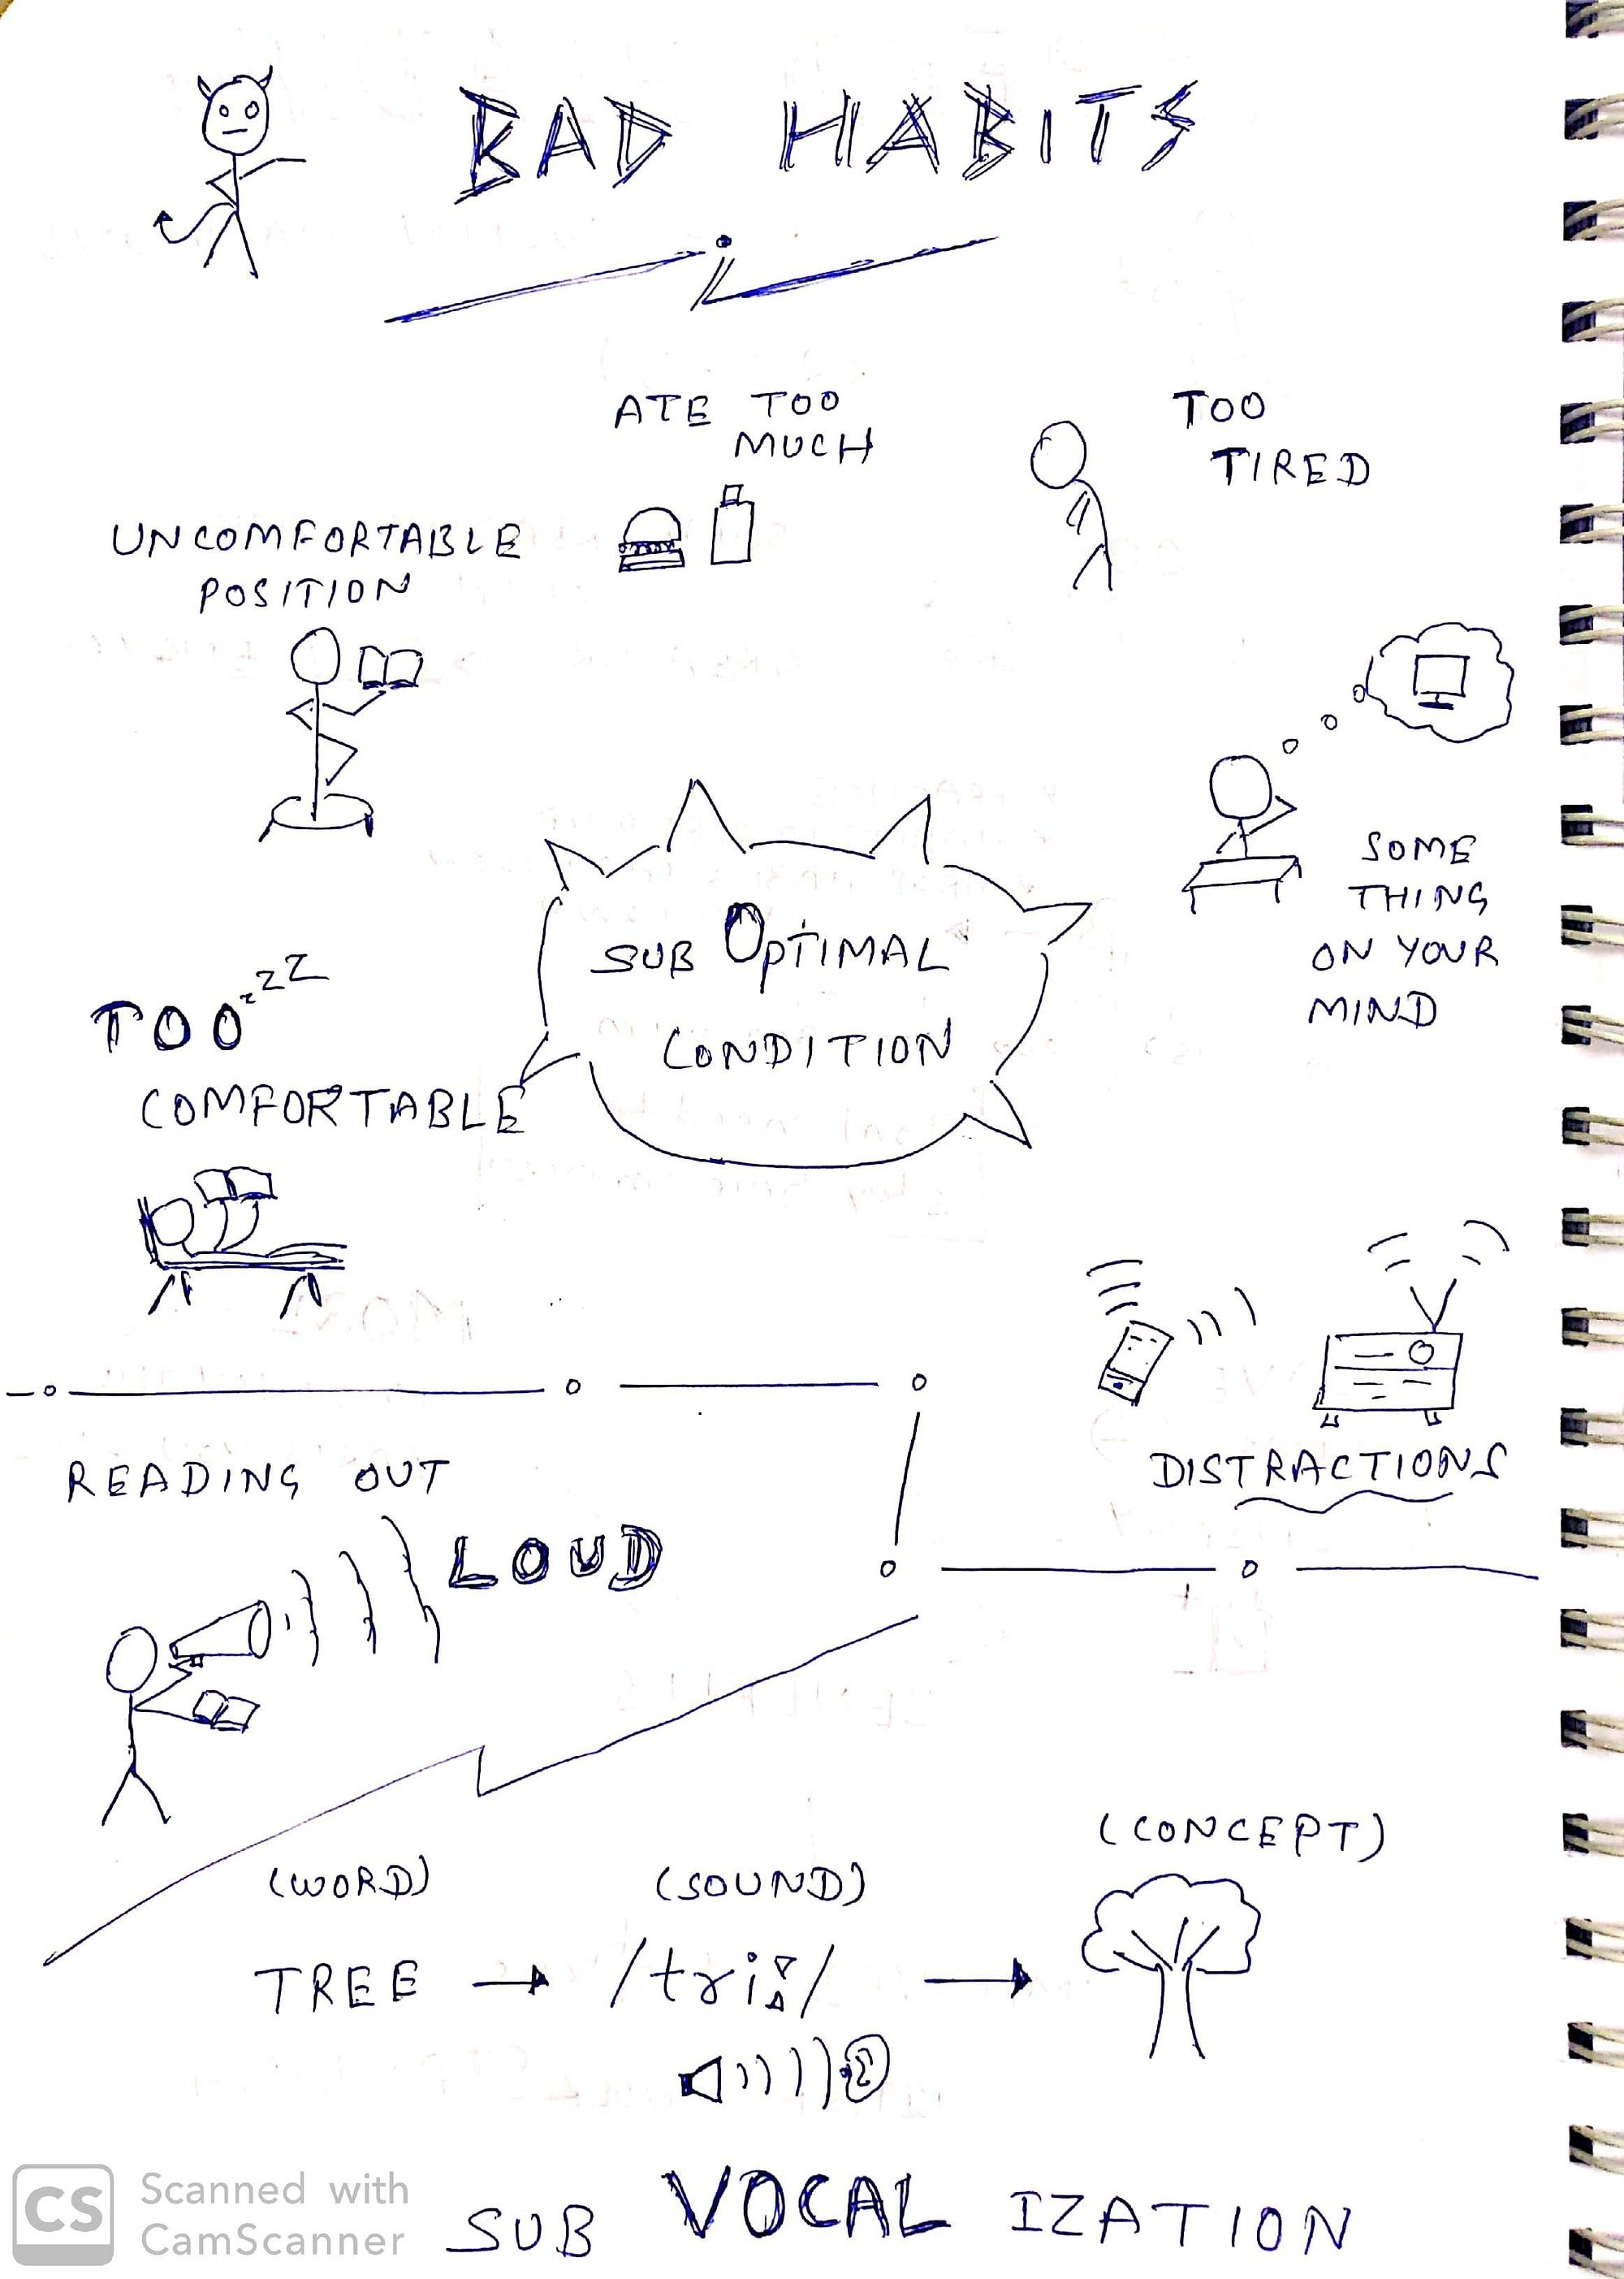 BAD HABITS
ATE TOO
MUCH
TOO
TIRED
UNCOMFORTABLE
POSITION
SOME
THING
ON YOUR
MIND
SUB OPTIMAL
CONDITION
TOO zzZ
COMFORTABLE
DISTRACTIONS
READING OUT
LOUD
(WORD) (SOUND) (CONCEPT)
TREE → /triː/ →
SUB VOCAL IZATION
CS Scanned with
CamScanner